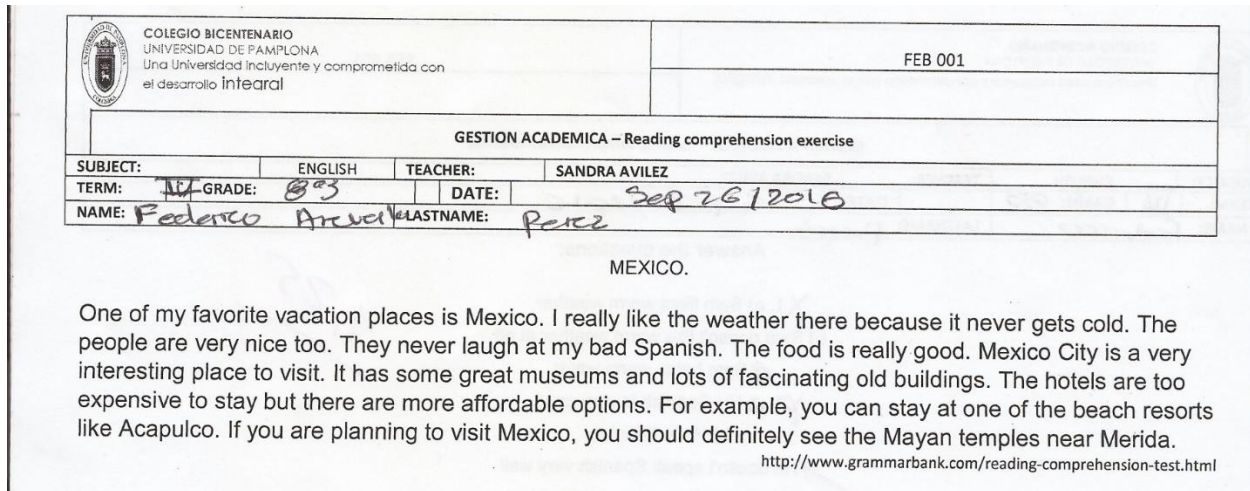 COLEGIO BICENTENARIO
UNIVERSIDAD DE PAMPLONA
Una Universidad Incluyente y comprometida con
el desarrollo integral
FEB 001
GESTION ACADEMICA – Reading comprehension exercise
SUBJECT: ENGLISH TEACHER: SANDRA AVILEZ
TERM: GRADE: 8°3 DATE: Sep 26/2016
NAME: Federico LASTNAME: Perez
MEXICO.
One of my favorite vacation places is Mexico. I really like the weather there because it never gets cold. The
people are very nice too. They never laugh at my bad Spanish. The food is really good. Mexico City is a very
interesting place to visit. It has some great museums and lots of fascinating old buildings. The hotels are too
expensive to stay but there are more affordable options. For example, you can stay at one of the beach resorts
like Acapulco. If you are planning to visit Mexico, you should definitely see the Mayan temples near Merida.
http://www.grammarbank.com/reading-comprehension-test.html